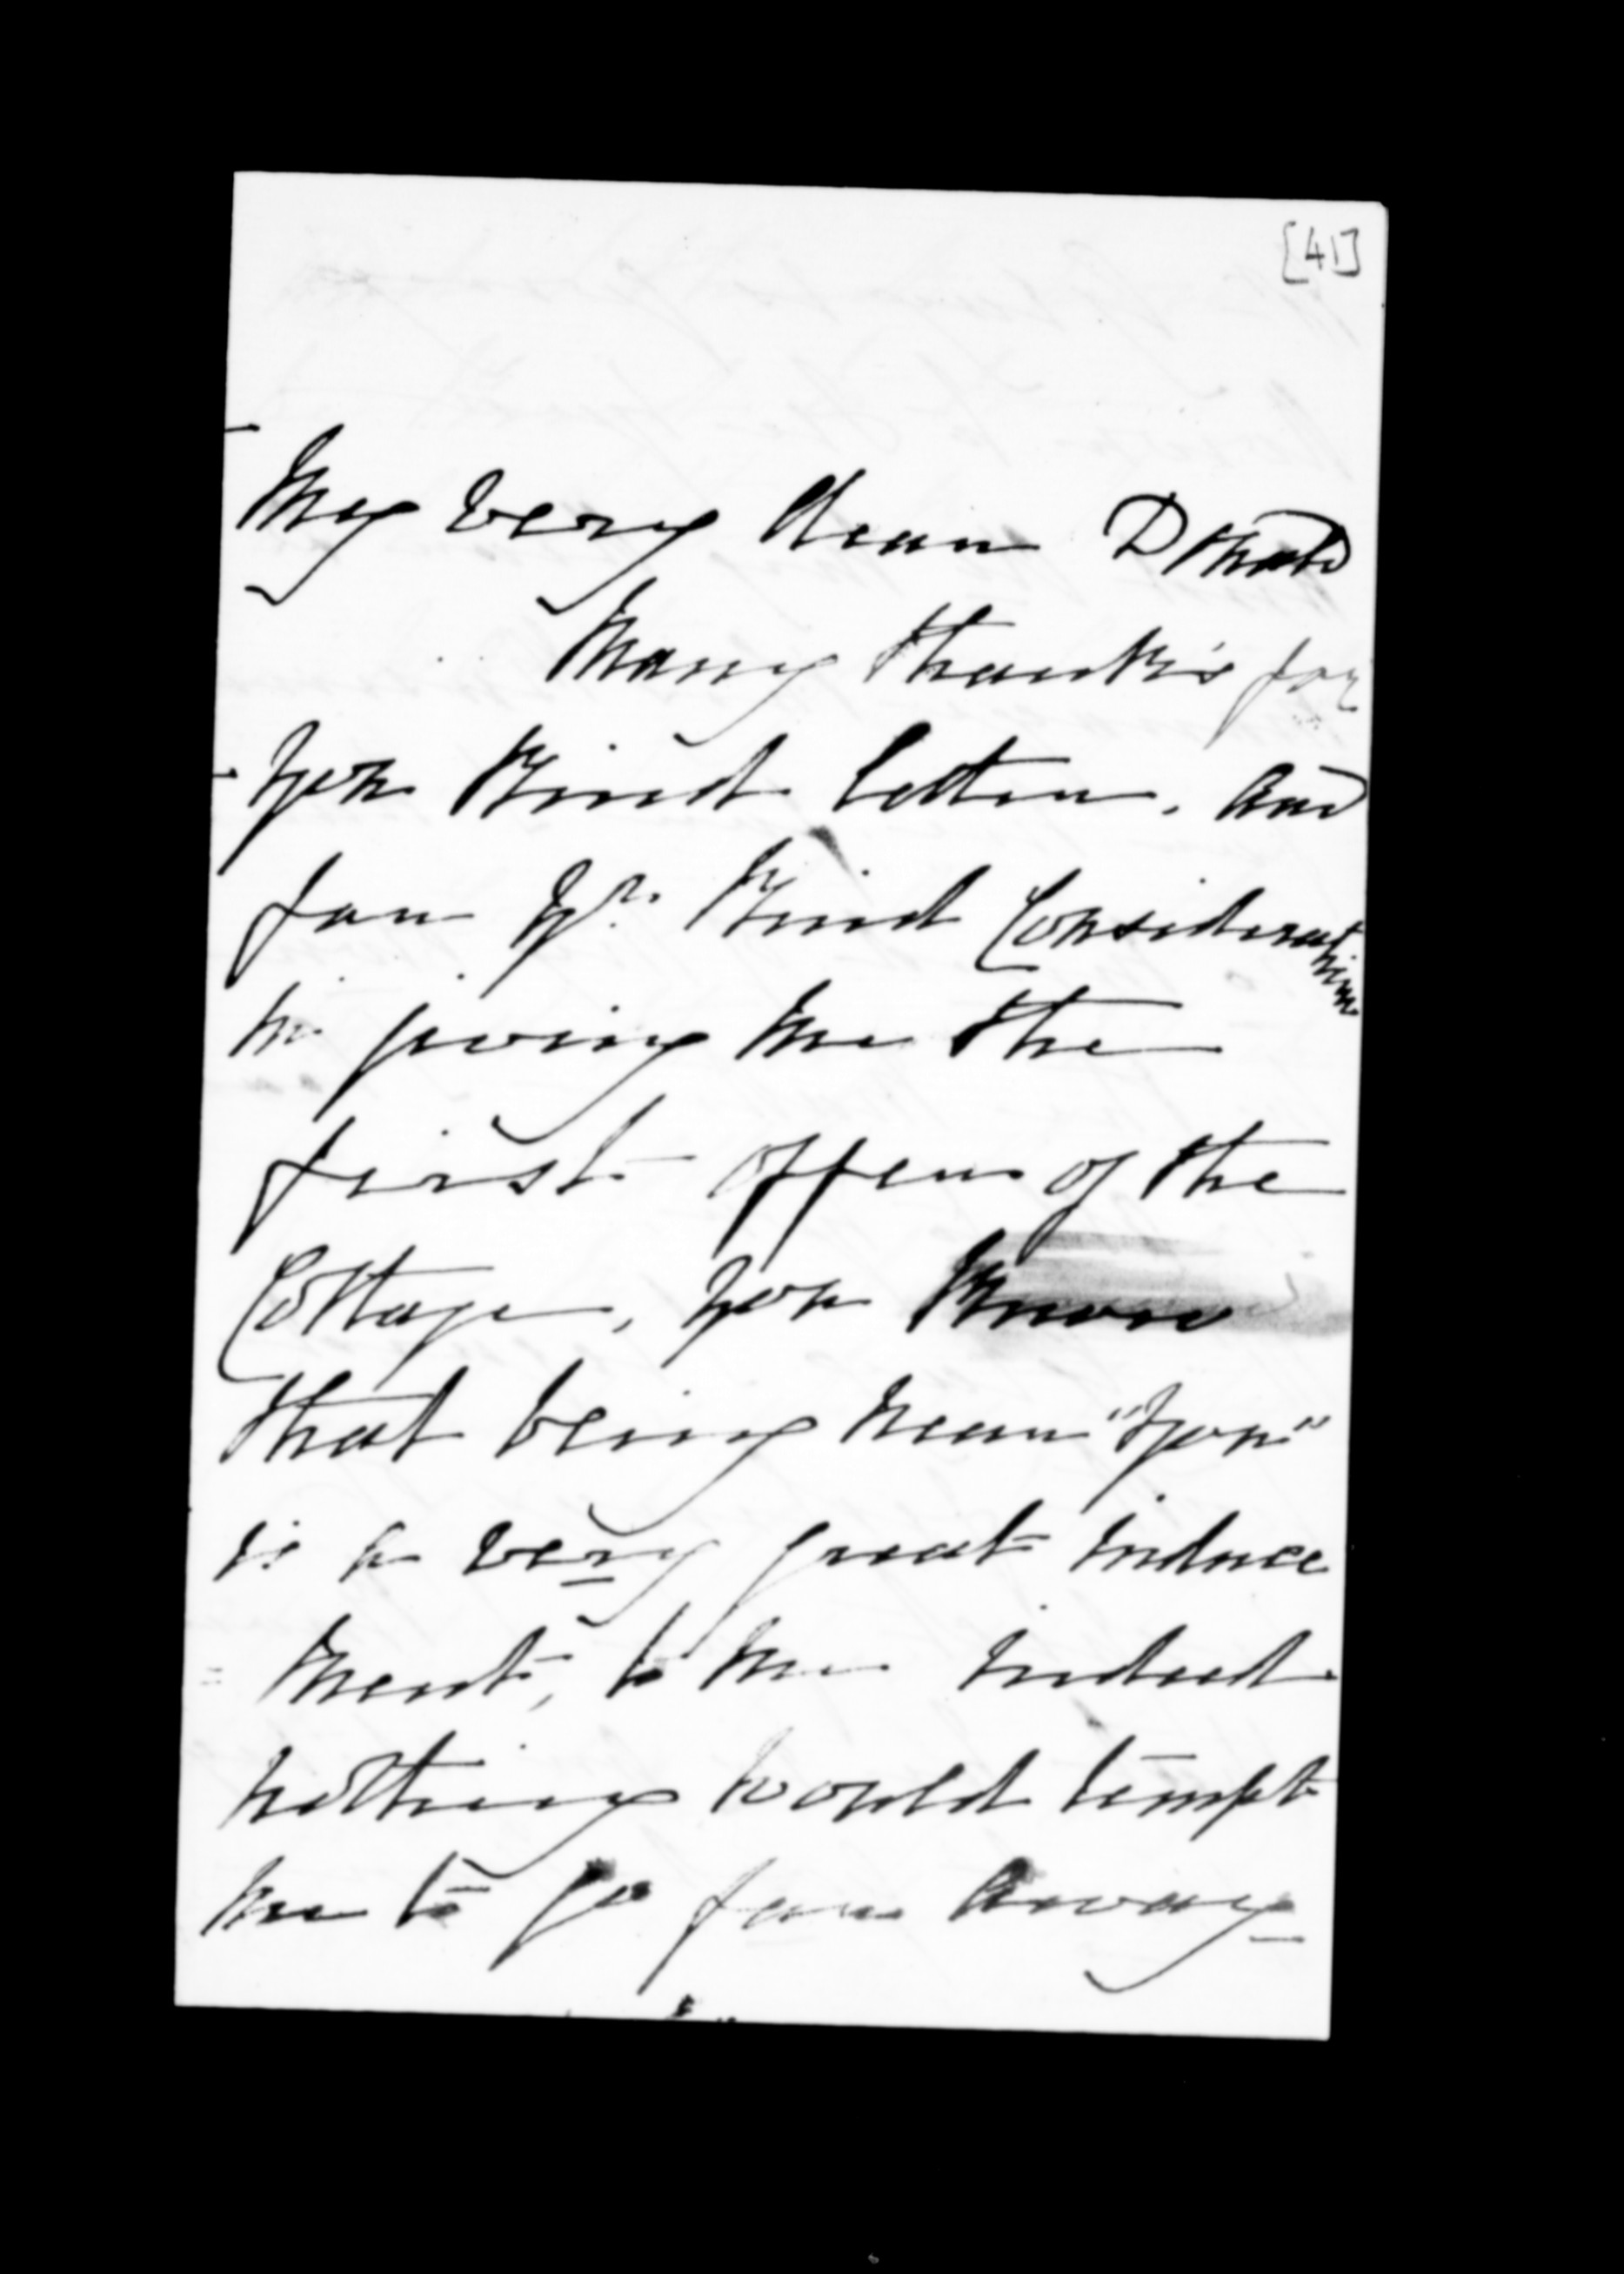 [41]
My very dear Donald
Many thanks for
your kind letter. and
for yr. kind Consideration
in giving me the
first offer of the
Cottage, you know
that being near "you"
is a very great induce
ment, to me indeed
nothing would tempt
me to go far away